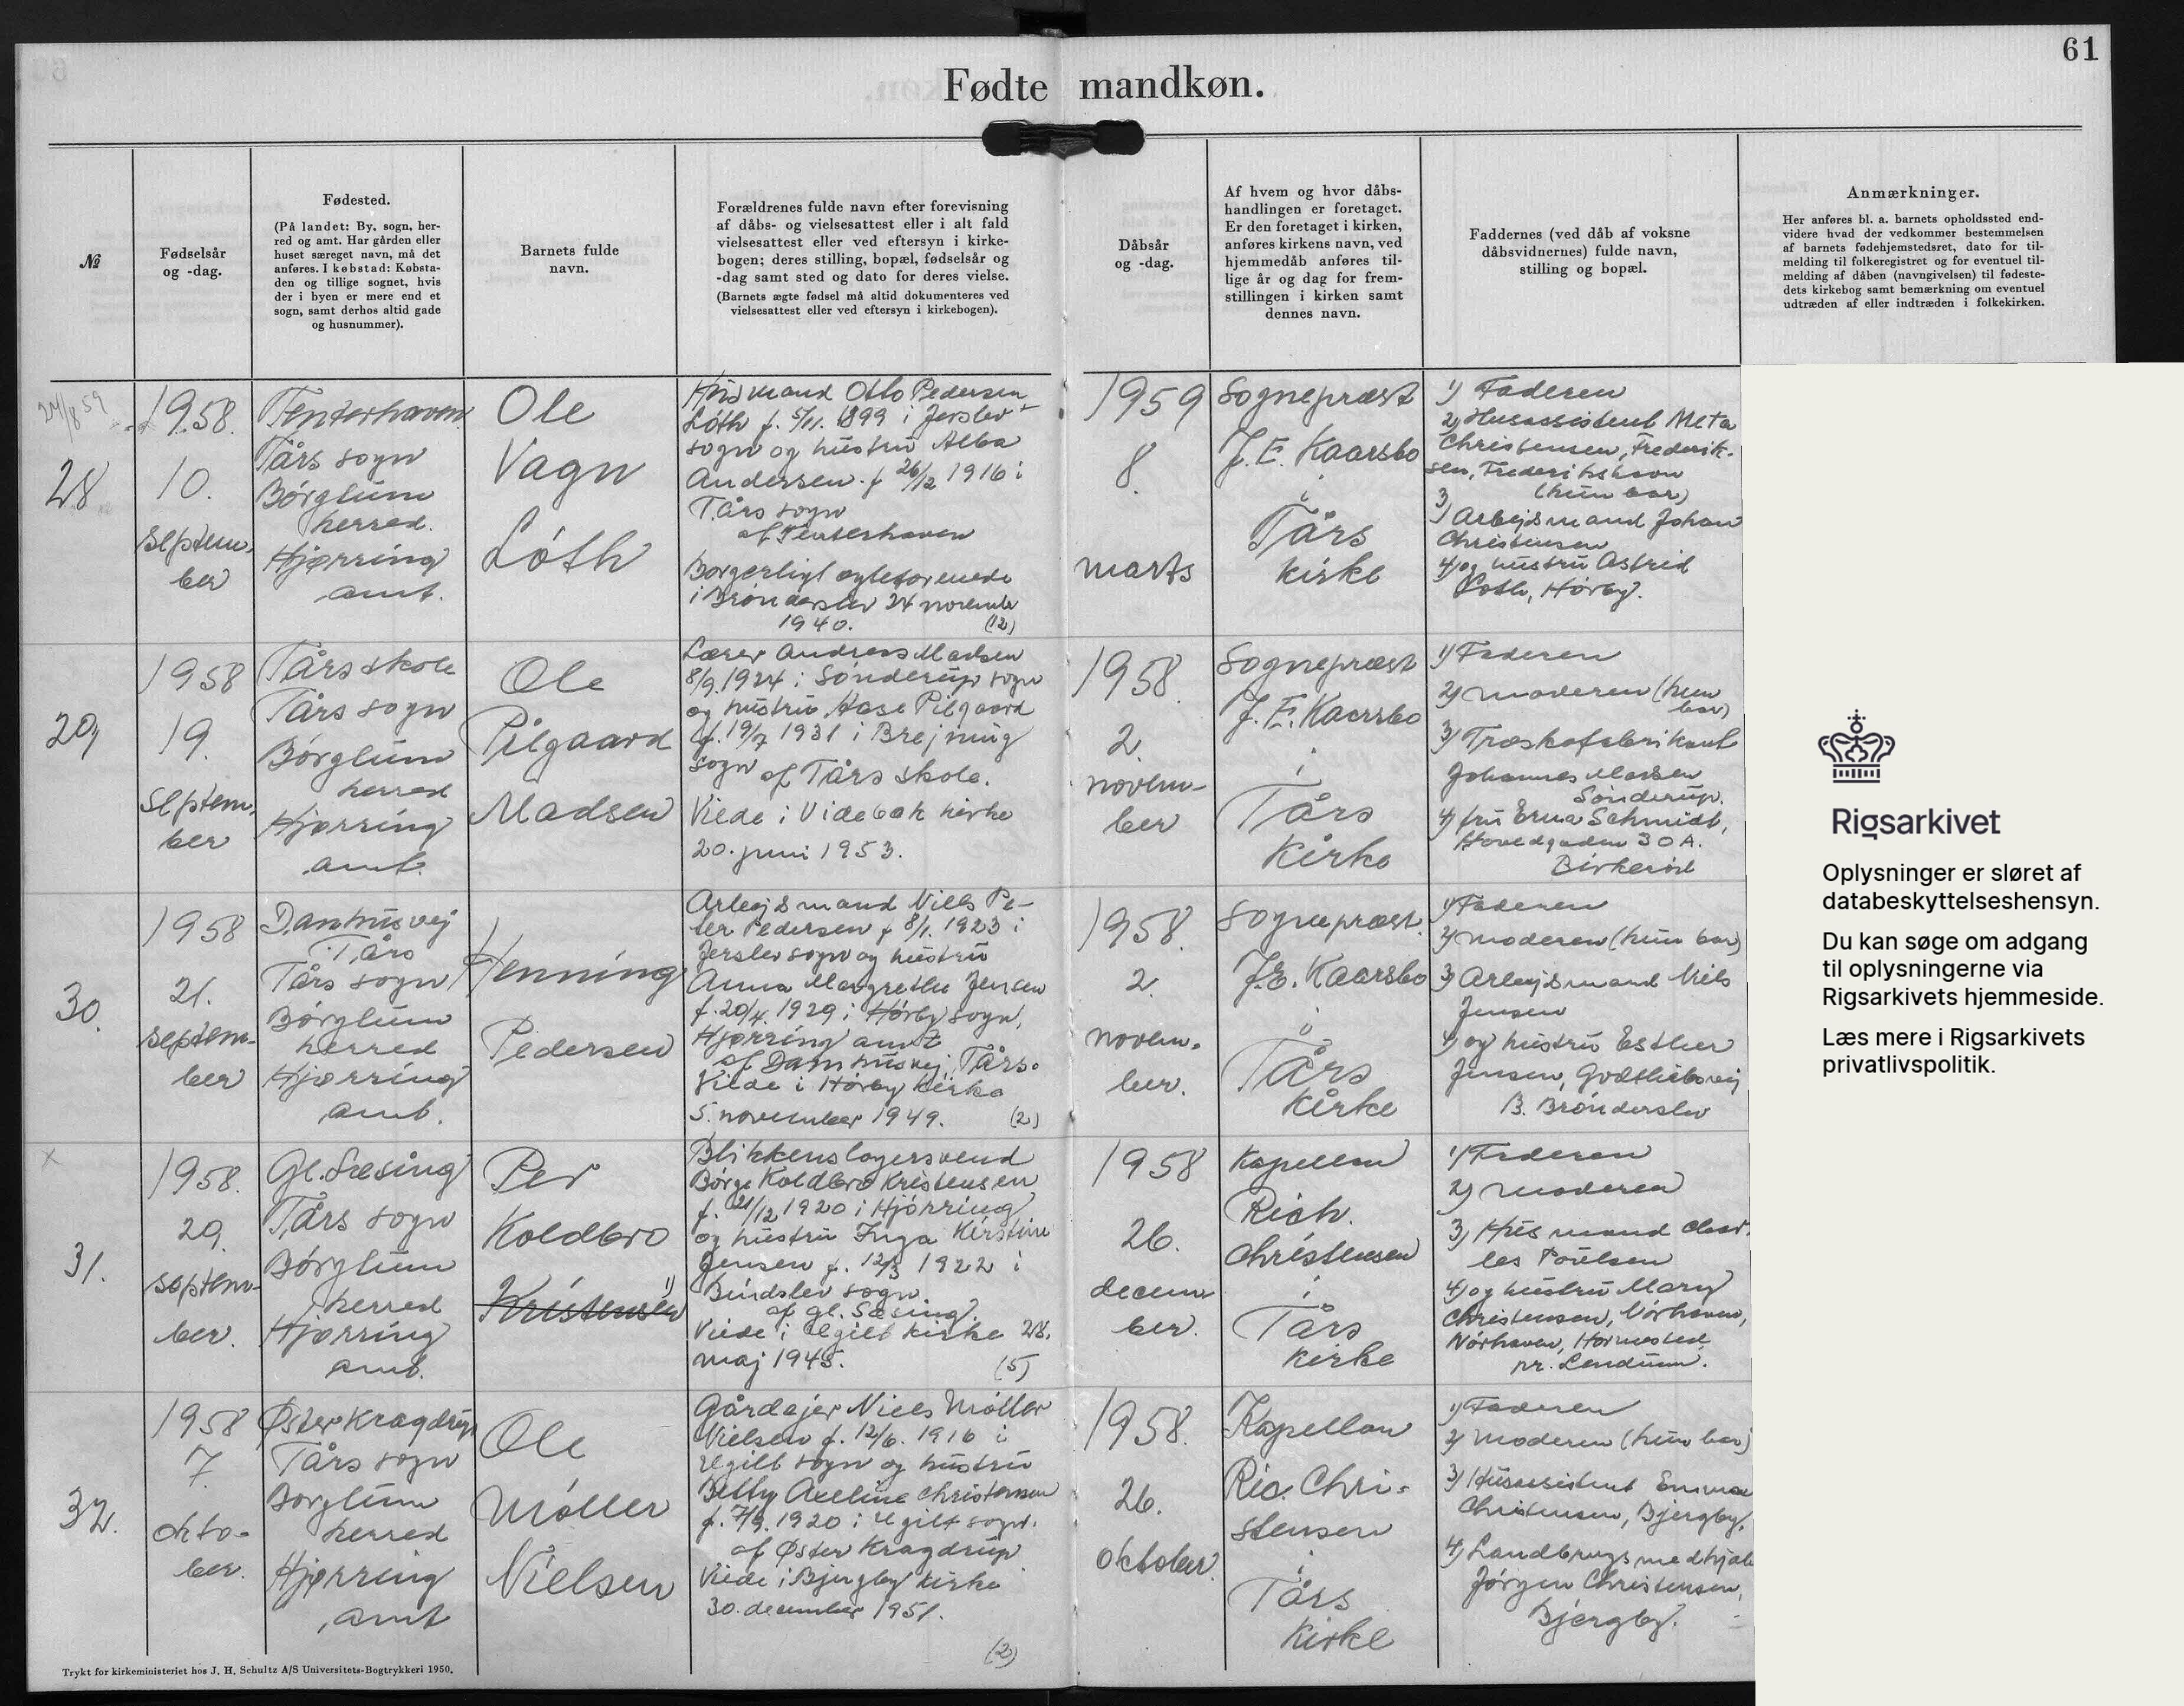 61
Fødte mandkøn.
№
Fødselsår
og -dag.
Fødested.
(På landet: By, sogn, her-
red og amt. Har gården eller
huset særeget navn, må det
anføres. I købstad: Købsta-
den og tillige sognet, hvis
der i byen er mere end et
sogn, samt derhos altid gade
og husnummer).
Barnets fulde
navn.
Forældrenes fulde navn efter forevisning
af dåbs- og vielsesattest eller i alt fald
vielsesattest eller ved eftersyn i kirke-
bogen; deres stilling, bopæl, fødselsår og
-dag samt sted og dato for deres vielse.
(Barnets ægte fødsel må altid dokumenteres ved
vielsesattest eller ved eftersyn i kirkebogen).
Dåbsår
og -dag.
Af hvem og hvor dåbs-
handlingen er foretaget.
Er den foretaget i kirken,
anføres kirkens navn, ved
hjemmedåb anføres til-
lige år og dag for frem-
stillingen i kirken samt
dennes navn.
Faddernes (ved dåb af voksne
dåbsvidnernes) fulde navn,
stilling og bopæl.
Anmærkninger.
Her anføres bl. a. barnets opholdssted end-
videre hvad der vedkommer bestemmelsen
af barnets fødehjemstedsret, dato for til-
melding til folkeregistret og for eventuel til-
melding af dåben (navngivelsen) til fødeste-
dets kirkebog samt bemærkning om eventuel
udtræden af eller indtræden i folkekirken.
24/8 59
28
1958.
10.
septem,
ber
Tenterhaven
Tårs sogn
Børglum
herred.
Hjørring
amt.
Ole
Vagn
Lóth
Husmand Otto Pedersen
Lóth f. 5/11. 1899 i Jerslev
sogn og hustru Alba
Andersen. f 26/12 1916 i
Tårs sogn
af Tenterhaven
Borgerligt ægteforenede
i Brønderslev 24 november
1940. (12)
1959
8.
marts
Sognepræst
J. E. Kaarsbo
i
Tårs
kirke
1) Faderen
2) Husassistent Meta
Christensen, Frederik-
sen, Frederikshavn
(hun bar)
3) Arbejdsmand Johan
Christensen
4) og hustru Astrid
Hørby.
29
1958
19.
septem,
ber
Tårs skole
Tårs sogn
Børglum
herred
Hjørring
amt.
Ole
Pilgaard
Madsen
Lærer Andreas Madsen
8/9. 1924 i Sønderup sogn
og hustru Aase Pilgaard
f. 19/7 1931 i Brejning
sogn af Tårs skole.
Viede i Videbæk kirke
20. juni 1953.
1958.
2.
novem-
ber
Sognepræst
J. E. Kaarsbo
i
Tårs
Kirke
1) Faderen
2) moderen (hun
bar)
3) Træskofabrikant
Johannes Madsen
Sønderup.
4) fru Erna Schmidt,
Hovedgaden 30 A.
Birkerød
30.
1958
21.
septem-
ber
Damhusvej
Tårs
Tårs sogn
Børglum
herred
Hjørring
amt.
Henning
Pedersen
Arbejdsmand Niels Pe-
ter Pedersen f 8/1. 1923 i
Jerslev sogn og hustru
Anna Margrethe Jensen
f. 20/4. 1929 i Hørby sogn,
Hjørring amt
af Damhusvej, Tårs.
Viede i Hørby Kirke
5. november 1949. (2)
1958.
2.
novem-
ber.
Sognepræst.
J.E. Kaarsbo
i
Tårs
Kirke
1) Faderen
2) moderen (hun bar)
3) Arbejdsmand Niels
Jensen
4) og hustru Esther
Jensen, Godthåbsvej
B. Brønderslev
x
31.
1958.
29.
septem-
ber.
Gl. Sæsing
Tårs sogn
Børglum
herred
Hjørring
amt.
Per
Koldbro
Kristensen 1)
Blikkenslagersvend
Børge Koldbro Kristensen
f. 21/12 1920 i Hjørring
og hustru Inga Kirstine
Jensen f. 12/3 1922 i
Bindslev sogn
af gl. Sæsing.
Viede i Ugilt kirke 28.
maj 1945. (5)
1958
26.
decem
ber.
Kapellan
Rich.
Christensen
i
Tårs
kirke
1) Faderen
2) moderen
3) Husmand Char-
les Poulsen
4) og hustru Mary
Christensen, Nørhaven,
Nørhaven, Hormested
pr. Lendum.
32.
1958
7.
okto-
ber.
Øster Kragdrup
Tårs sogn
Børglum
herred
Hjørring
amt
Ole
Møller
Nielsen
Gårdejer Niels Møller
Nielsen f. 12/6. 1916 i
Ugilt sogn og hustru
Betty Aveline Christensen
f. 7/9. 1920 i Ugilt sogn.
af Øster Kragdrup
Viede i Bjergby kirke
30. december 1951.
(2)
1958.
26.
oktober.
Kapellan
Ric. Chri-
stensen
i
Tårs
Kirke
1) Faderen
2) Moderen (hun bar)
3) Husassistent Emma
Christensen, Bjergby.
4) Landbrugsmedhjæl
Jørgen Christensen,
Bjergby.
Trykt for kirkeministeriet hos J. H. Schultz A/S Universitets-Bogtrykkeri 1950.
Rigsarkivet
Oplysninger er sløret af
databeskyttelseshensyn.
Du kan søge om adgang
til oplysningerne via
Rigsarkivets hjemmeside.
Læs mere i Rigsarkivets
privatlivspolitik.